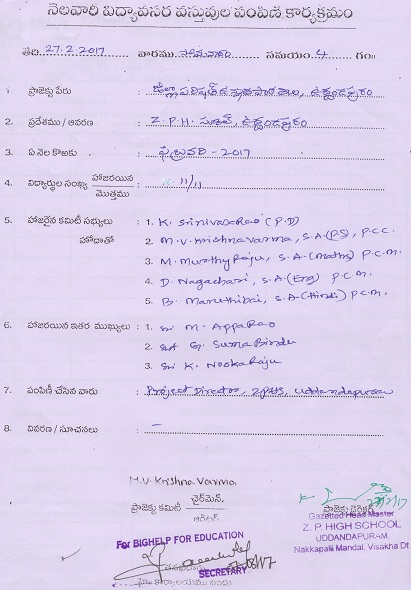 నెలవారీ విద్యావసర వస్తువుల పంపిణీ కార్యక్రమం
తేది 27.2.2017 వారము సోమవారం సమయం 4 గం॥
1. ప్రాజెక్టు పేరు : జిల్లాపరిషత్ ఉన్నతపాఠశాల, ఉద్దండపురం
2. ప్రదేశము / ఆవరణ : Z.P.H. స్కూల్, ఉద్దండపురం
3. ఏ నెల కొఱకు : ఫిబ్రవరి - 2017
4. విద్యార్థుల సంఖ్య హాజరయిన : 11/11
మొత్తము
5. హాజరైన కమిటీ సభ్యులు : 1. K. Srinivasa Rao (P.D)
హోదాతో 2. M.V. Krishna Varma, S.A.(PS), P.C.C.
3. M. Murthy Raju, S.A-(Maths) P.C.M.
4. D. Nagachari, S.A-(Eng) P.C.M.
5. B. Maruthibai, S.A-(Hindi) P.C.M.
6. హాజరయిన ఇతర ముఖ్యులు : 1. Sri M. AppaRao
2. Smt G. Suma Bindu
3. Sri K. NookaRaju
7. పంపిణీ చేసిన వారు : Project Director, ZPHS, Uddandapuram
8. వివరణ / సూచనలు : -
M.V. Krishna Varma
ప్రాజెక్టు కమిటీ ఛైర్‌మెన్,
ప్రాజెక్టు డైరెక్టర్
Gazetted Head Master
Z. P. HIGH SCHOOL
UDDANDAPURAM,
Nakkapalli Mandal, Visakha Dt
For BIGHELP FOR EDUCATION
SECRETARY